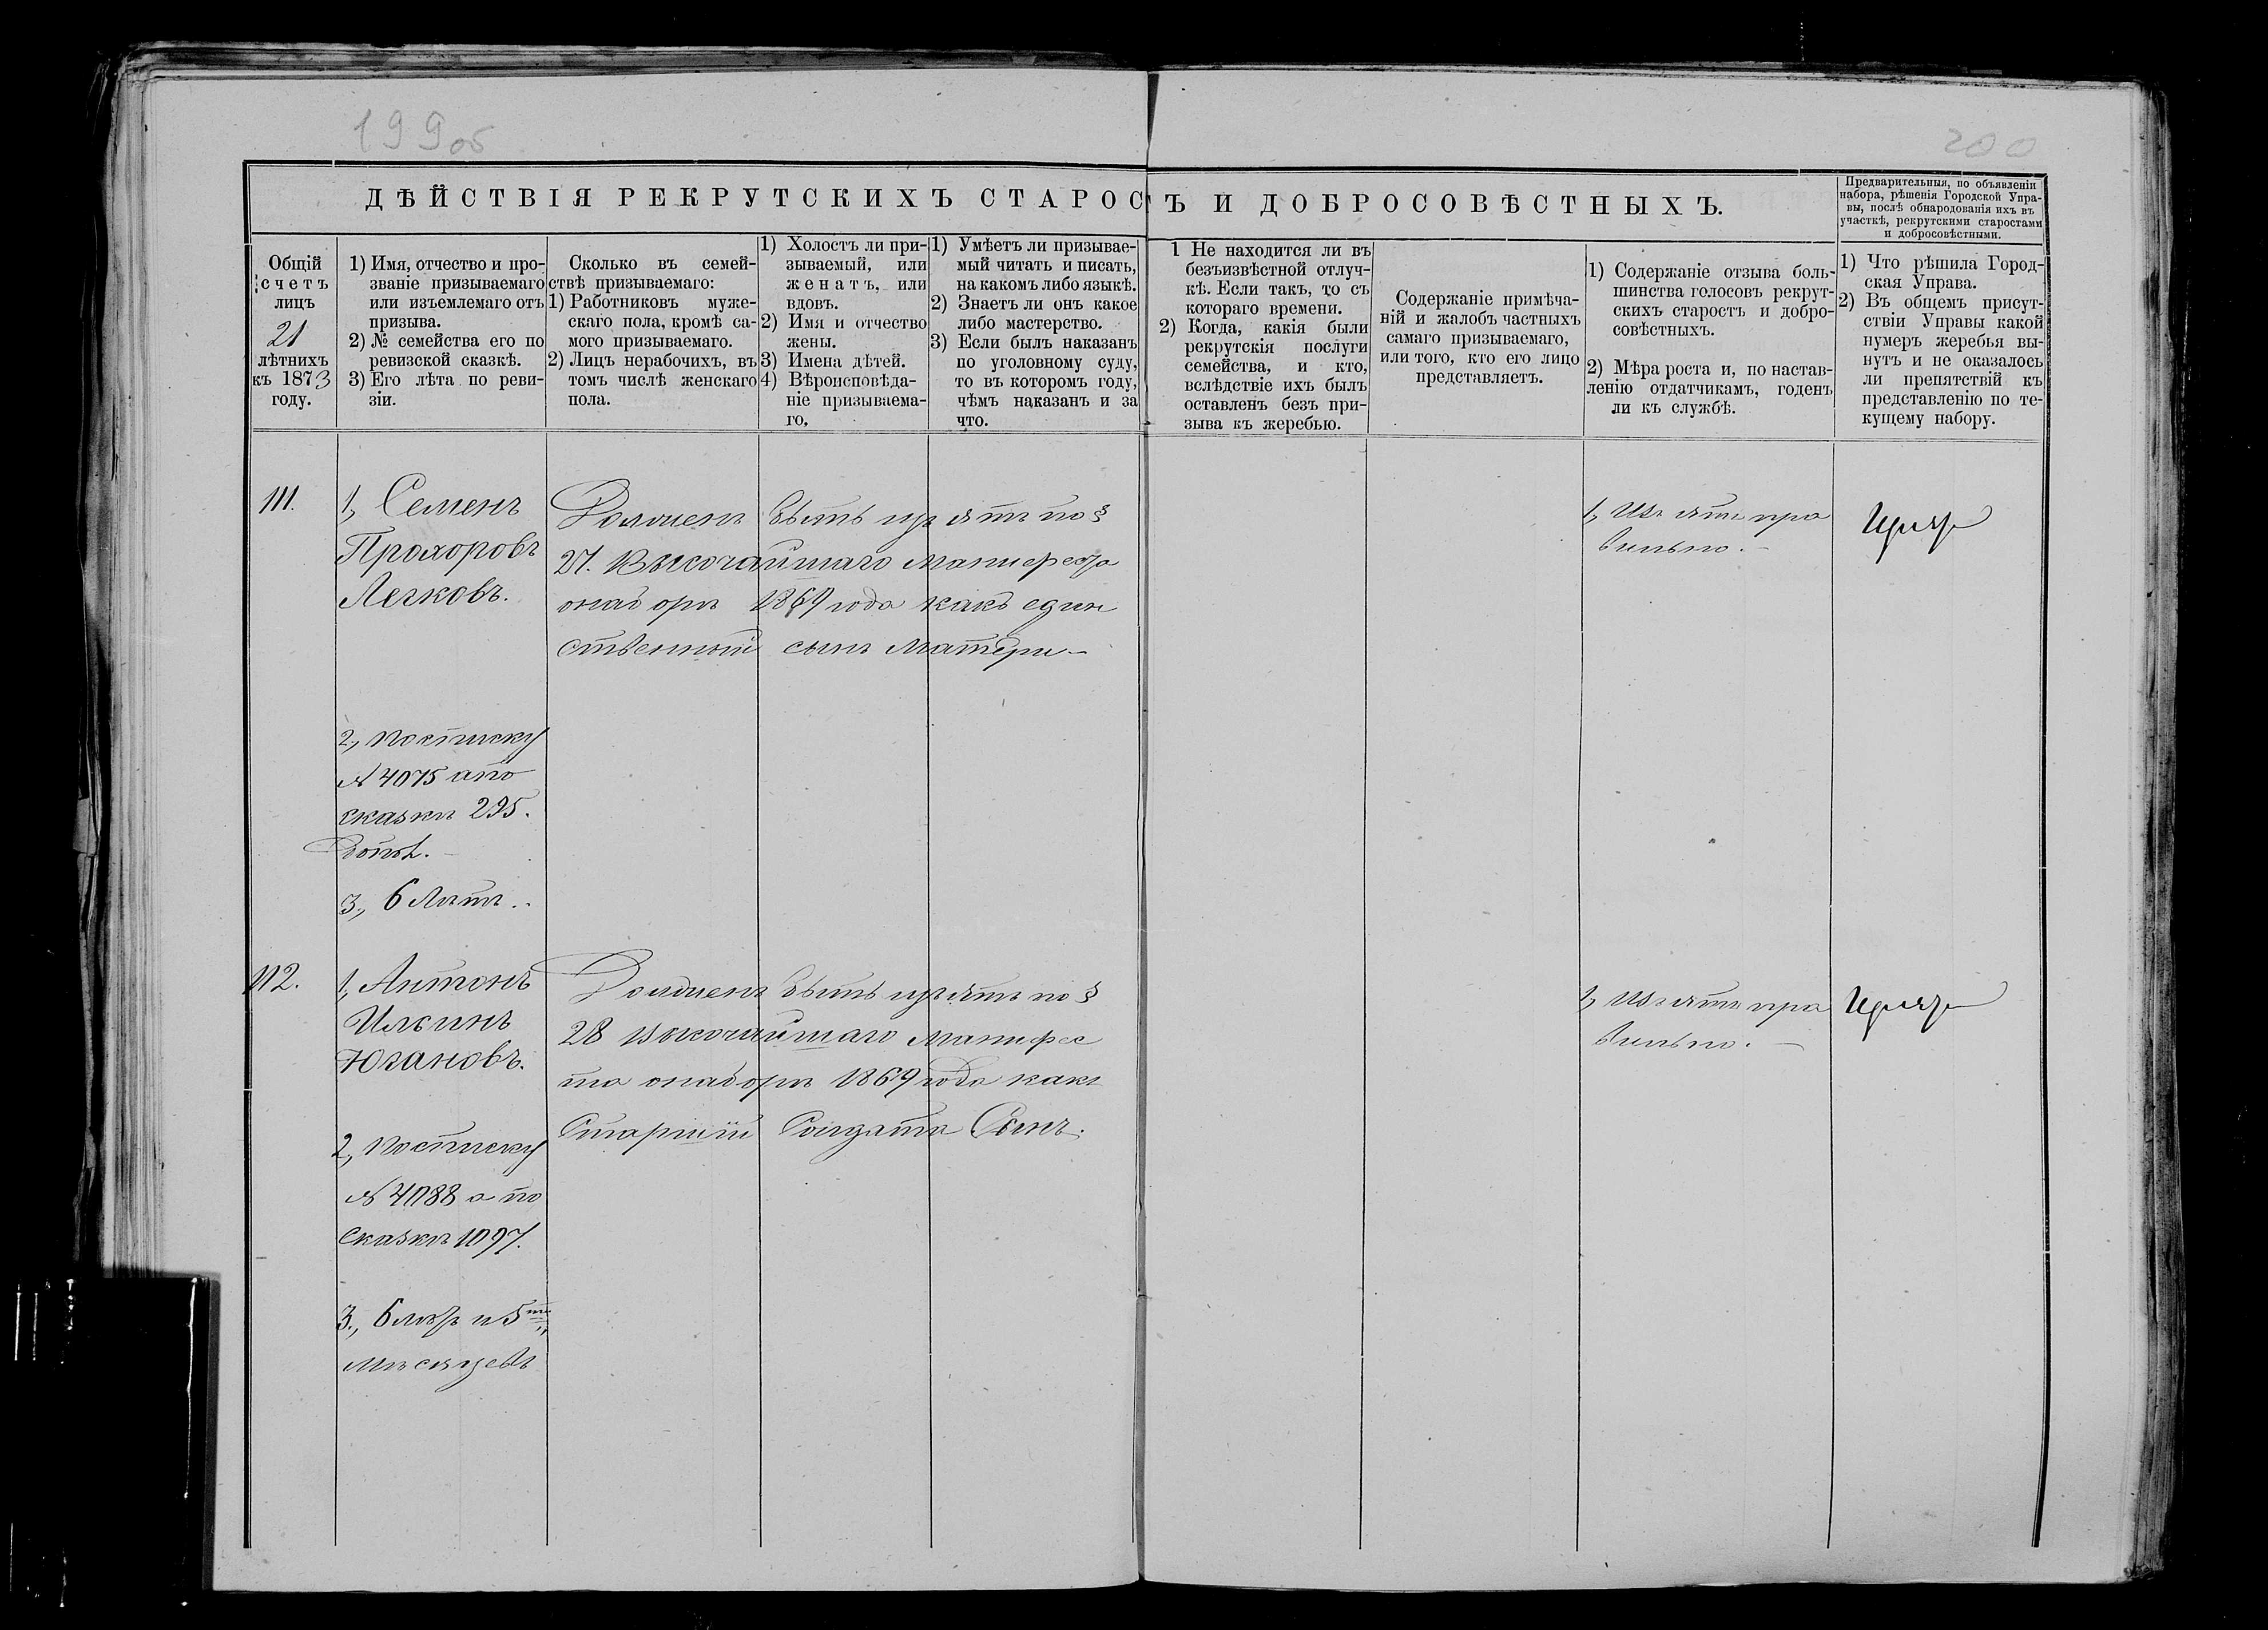 199об
200
ДѢЙСТВІЯ РЕКРУТСКИХЪ СТАРОСТЪ И ДОБРОСОВѢСТНЫХЪ.
Предварительныя, по объявленіи
набора, рѣшенія Городской Упра-
вы, послѣ обнародованія ихъ въ
участкѣ, рекрутскими старостами
и добросовѣстными.
Общій
счетъ
лицъ
21
лѣтнихъ
къ 1873
году.
1) Имя, отчество и про-
званіе призываемаго
или изъемлемаго отъ
призыва.
2) № семейства его по
ревизской сказкѣ.
3) Его лѣта по реви-
зіи.
Сколько въ семей-
ствѣ призываемаго:
1) Работниковъ муже-
скаго пола, кромѣ са-
мого призываемаго.
2) Лицъ нерабочихъ, въ
томъ числѣ женскаго
пола.
1) Холостъ ли при-
зываемый, или
женатъ, или
вдовъ.
2) Имя и отчество
жены.
3) Имена дѣтей.
4) Вѣроисповѣда-
ніе призываема-
го.
1) Умѣетъ ли призывае-
мый читать и писать,
на какомъ либо языкѣ.
2) Знаетъ ли онъ какое
либо мастерство.
3) Если былъ наказанъ
по уголовному суду,
то въ которомъ году,
чѣмъ наказанъ и за
что.
1 Не находится ли въ
безъизвѣстной отлуч-
кѣ. Если такъ, то съ
котораго времени.
2) Когда, какія были
рекрутскія послуги
семейства, и кто,
вслѣдствіе ихъ былъ
оставленъ безъ при-
зыва къ жеребью.
Содержаніе примѣча-
ній и жалобъ частныхъ
самаго призываемаго,
или того, кто его лицо
представляетъ.
1) Содержаніе отзыва боль-
шинства голосовъ рекрут-
скихъ старостъ и добро-
совѣстныхъ.
2) Мѣра роста и, по настав-
ленію отдатчикамъ, годенъ
ли къ службѣ.
1) Что рѣшила Город-
ская Управа.
2) Въ общемъ присут-
ствіи Управы какой
нумеръ жеребья вы-
нутъ и не оказалось
ли препятствій къ
представленію по те-
кущему набору.
111.
1, Семенъ
Прохоровъ
Легковъ.
2, По списку
№ 4075 а по
сказкѣ 295.
допол.
3., 6 Лѣтъ.
Долженъ быть изъятъ по §
27. Высочайшаго манифеста
о наборѣ 1869 года какъ един
ственный сынъ матери
1, Изъятъ пра
вильно.
112.
1, Антонъ
Ильинъ
Югановъ.
2, По списку
№ 4088 а по
сказкѣ 1097.
3., 6 лѣтъ и 5ть
мѣсяцевъ
Долженъ быть изъятъ по §
28 Высочайшаго манифес
та о наборѣ 1869 года какъ
Старшій Солдата Сынъ.
1, Изъятъ пра
вильно.